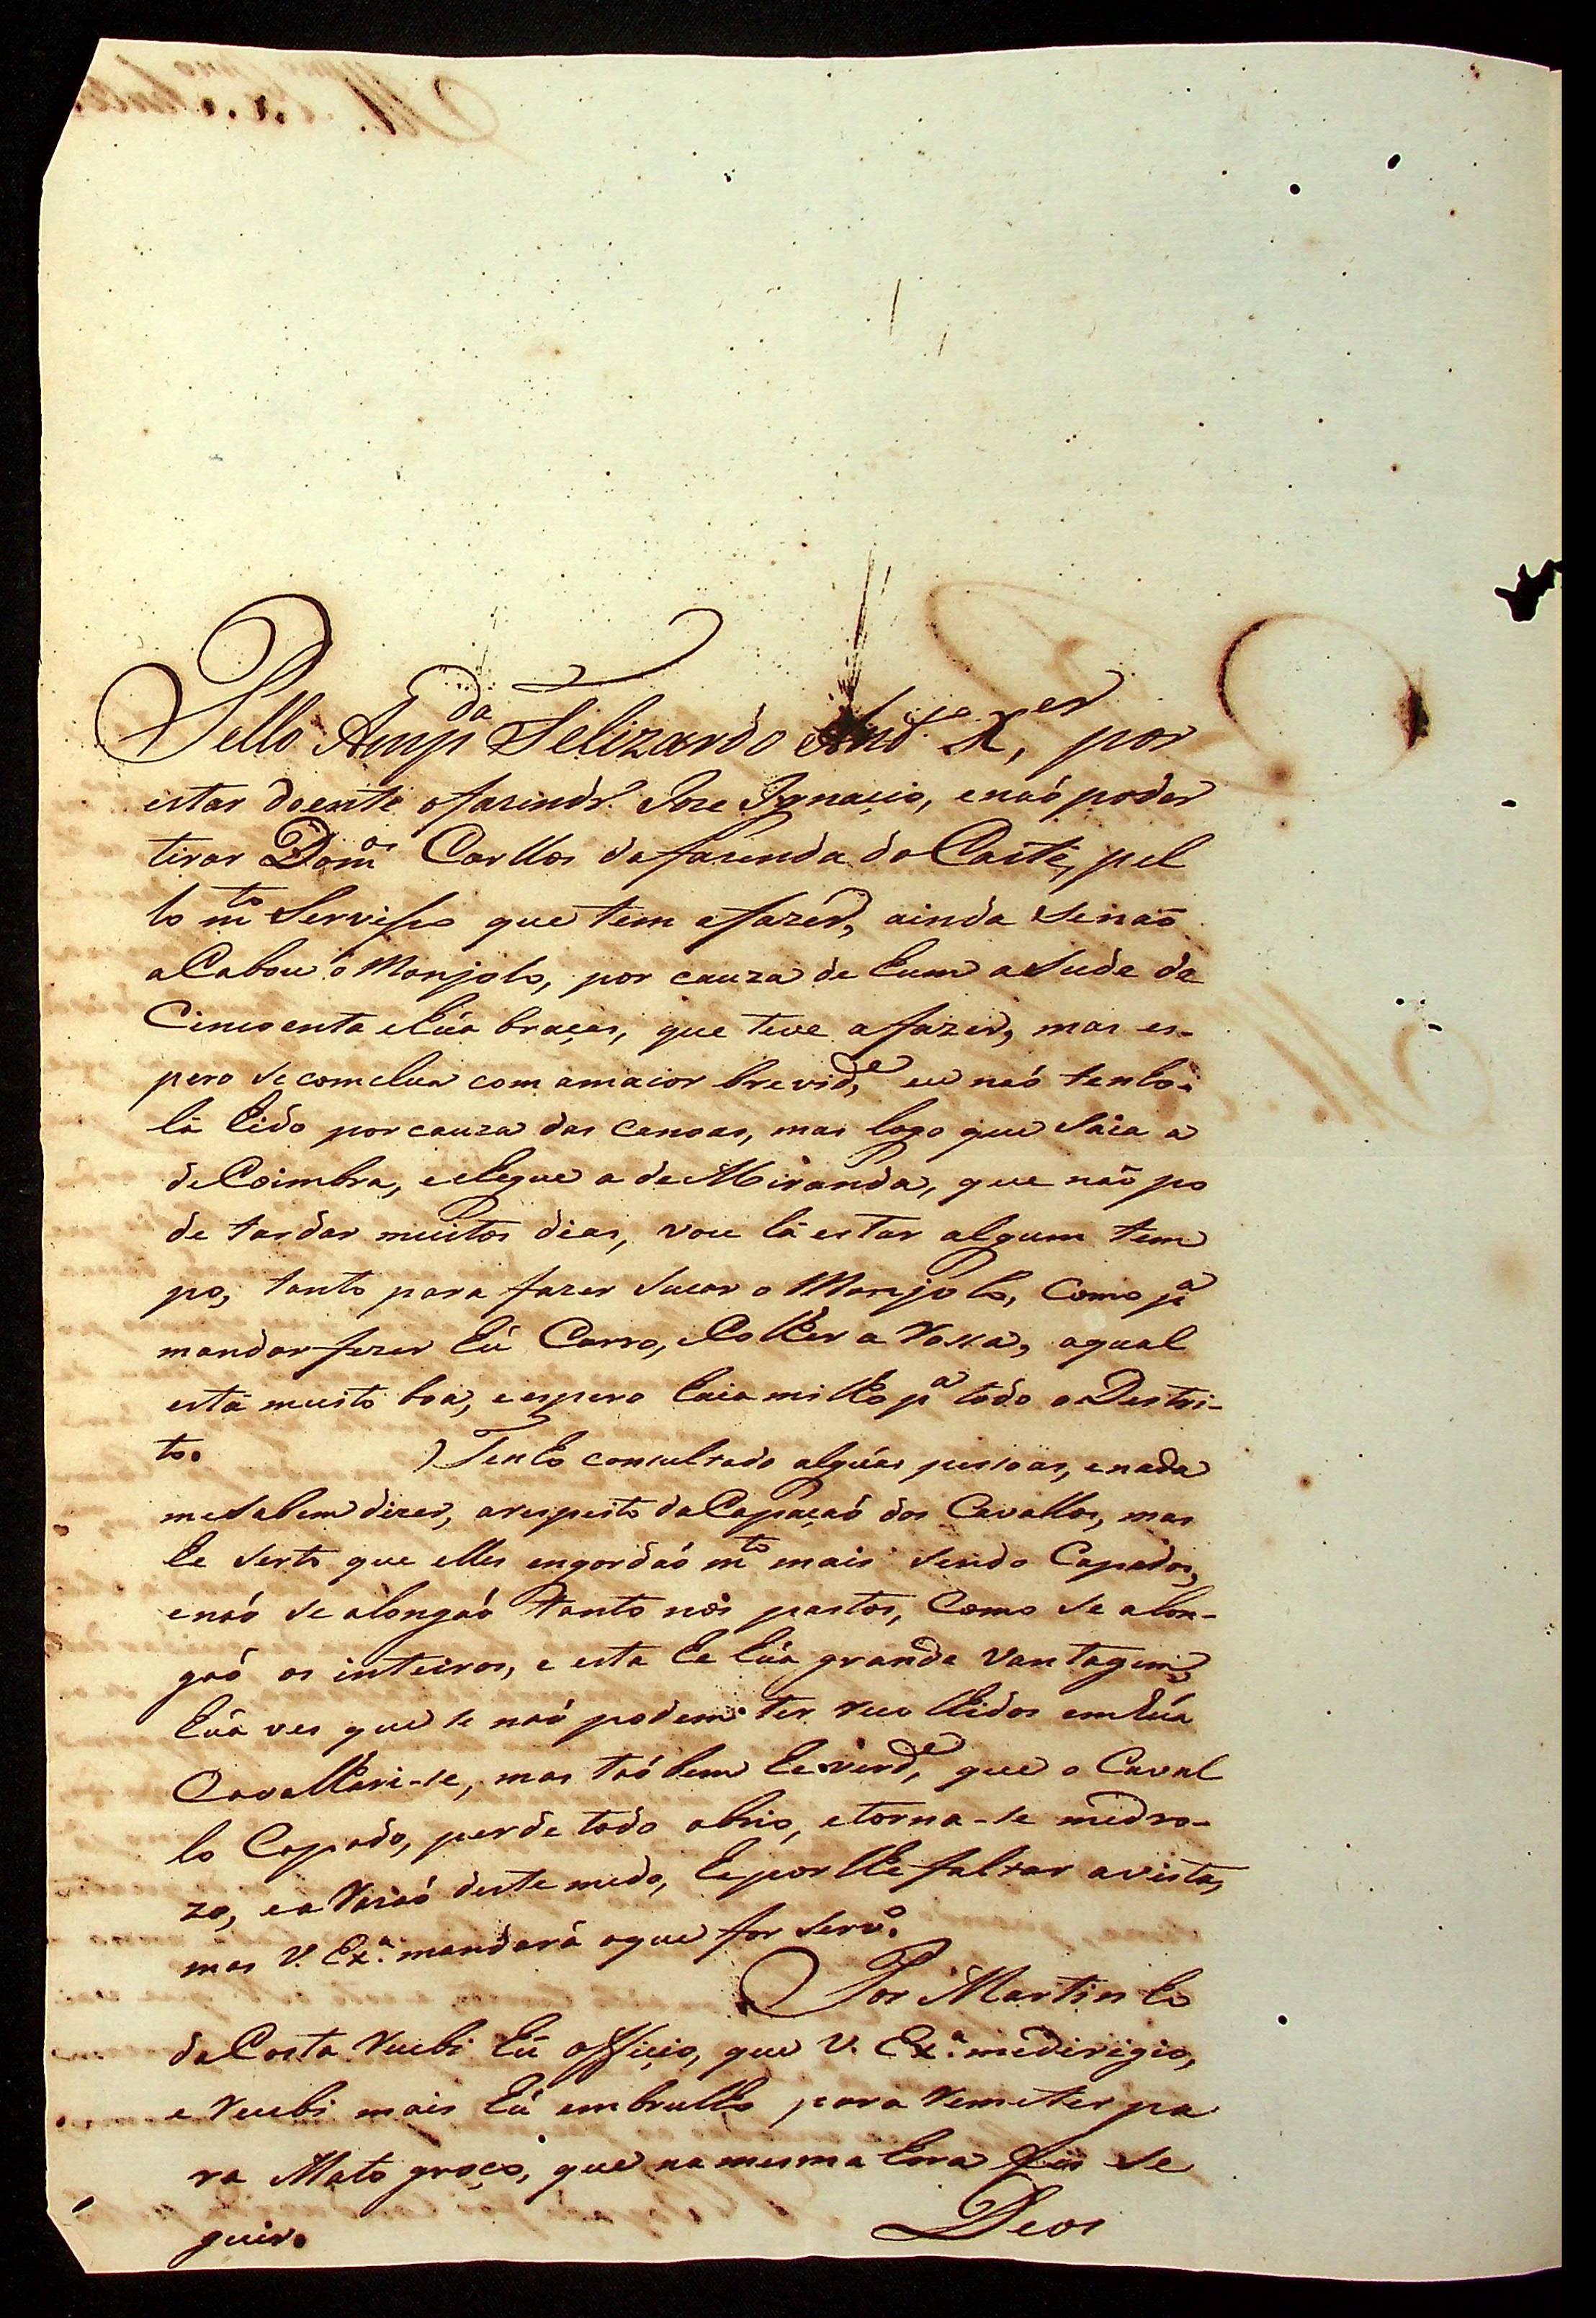 Pello Anspda Felizardo Andre Xer, por
estar doente o fazendr.o Joze Ignacio, enaó poder
tirar Domos Carllos da fazenda do Caeté, pel
lo mto Servisso que tem afazer, ainda senaõ
aCabou o Monjolo, por cauza de hum asude de
Cincoenta ehúa braças, que teve afazer, mas es-
pero se comclua com amaior brevide, eu naó tenho
lá hido por cauza das canoas, mas logo que saia a
deCoimbra, echegue a de Miranda, que naõ po
de tardar muitos dias, vou lá estar algum tem
po, tanto para fazer socar o Monjolo, como pa
mandar fazer hú Carro, eColher a Rossa, aqual
está muito boa, eespero haia milho pa todo o Destri-
to. Tenho consultado algúas pessoas, enada
mesabem dizer, arespeito daCapaçaó dos Cavallos, mas
he serto que elles engordaó mto mais sendo Capados,
enaó se alongaó tanto nos pastos, Como se alon-
gaó os inteiros, e esta he húa grande vantagem,
húa ves que se naó podem ter recolhidos emhúa
Cavalhari-se, mas taóbem he verde, que o Caval
lo Capado, perde todo obrio, etorna-se medro-
zo, ea Razaó deste medo, hepor lhe faltar avista,
mas V. Exa. mandará oque for servo.
Por Martinho
daCosta recebi hú officio, que V. Exa. medirigio,
e recebi mais hú embrulho para remeter pa
ra Mato groço, que na mesma hora fis se
guir. Deos